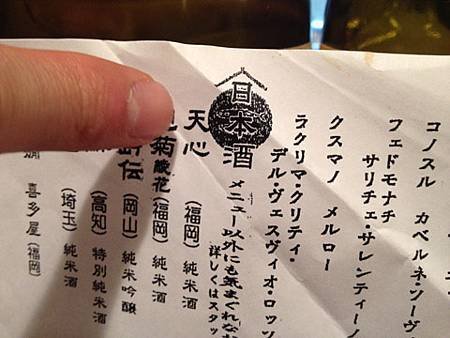 コノスル カベルネ・ソーヴ
フェドモナチ
サリチェ・サレンティーノ
クスマノ メルロー
ラクリマ・クリティ・
デル・ヴェスヴィオ・ロッソ
日本酒
メニュー以外にも気まぐれな
詳しくはスタッ
天心 (福岡) 純米酒
菊 酸花 (福岡) 純米酒
伝 (岡山) 純米吟醸
(高知) 特別純米酒
(埼玉) 純米酒
喜多屋 (福岡)